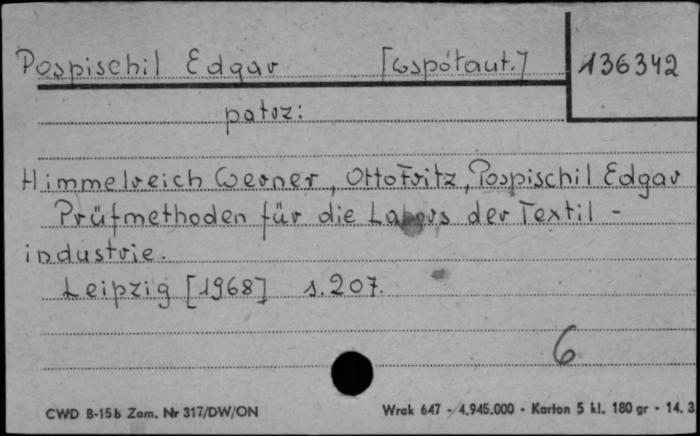 Pospischil Edgar [współaut.] 136342
patrz:
Himmelreich Werner, Otto Fritz, Pospischil Edgar
Prüfmethoden für die Labors der Textil -
industrie.
Leipzig [1968] s. 207.
6
CWD B-15b Zam. Nr 317/DW/ON Wrak 647 - 4.945.000 - Karton 5 kl. 180 gr - 14. 3